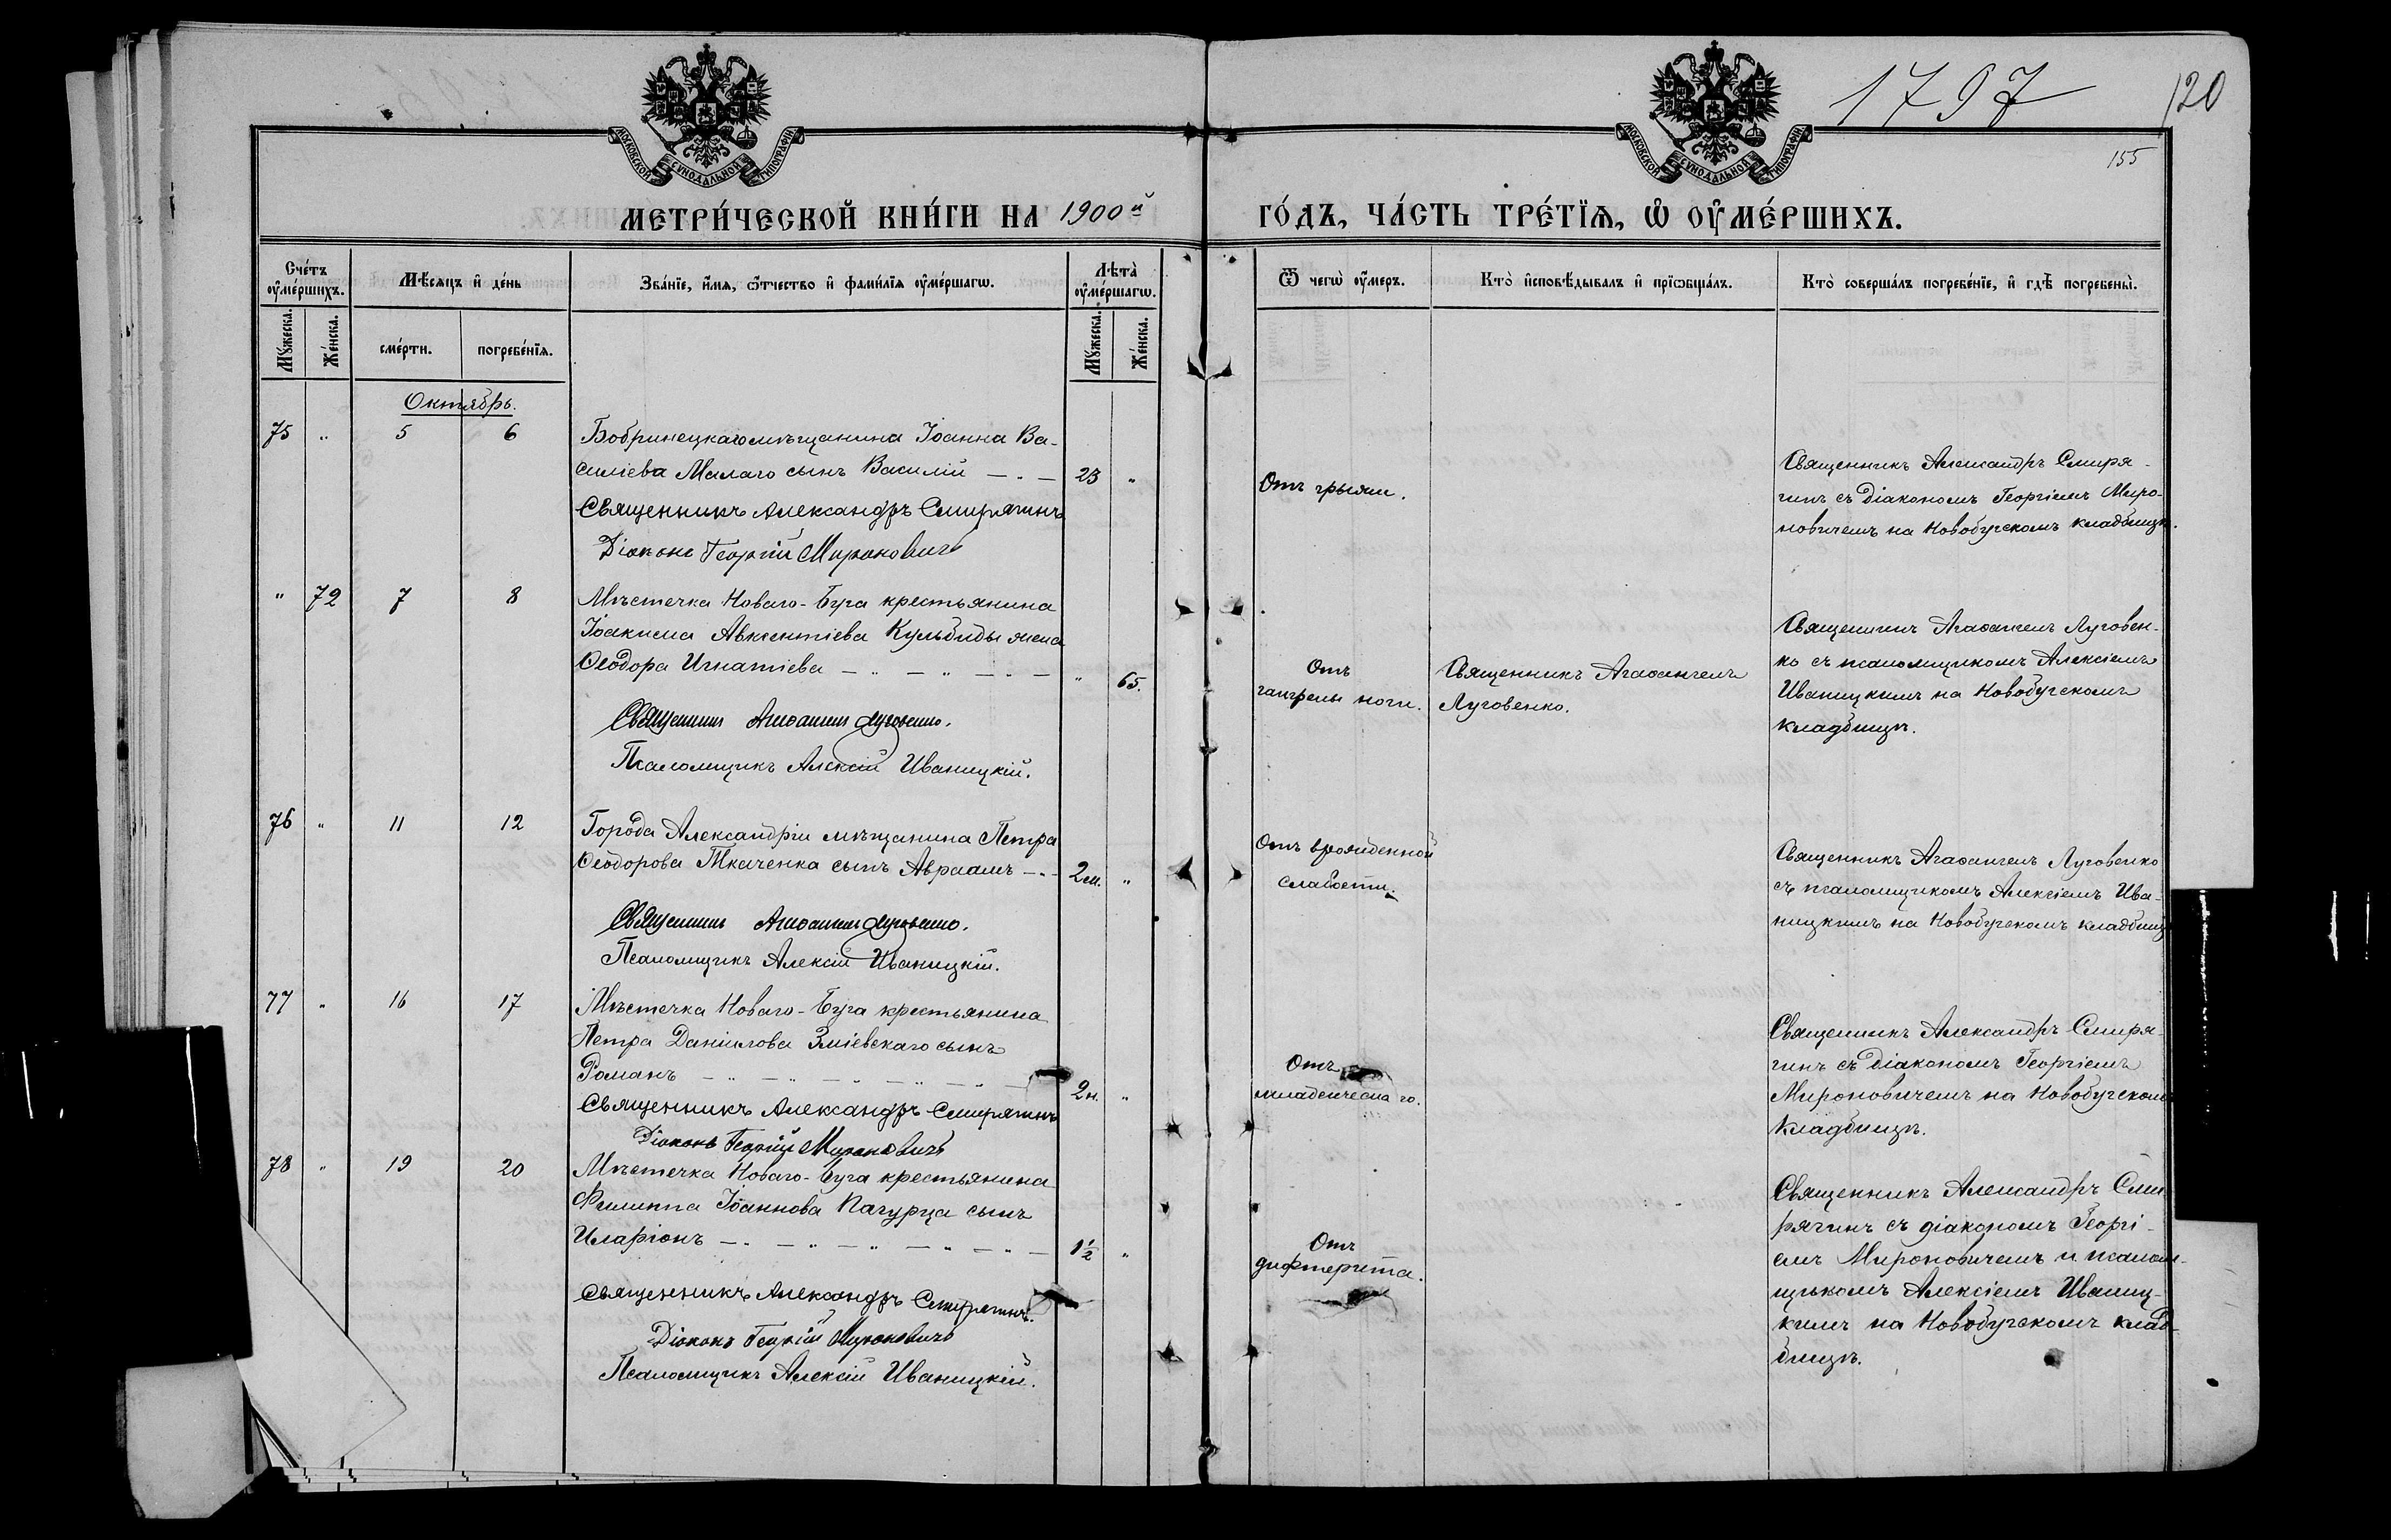 1797
120
155
МОСКОВСКОЙ СУНОДАЛЬНОЙ ТИПОГРАФІИ
МОСКОВСКОЙ СУНОДАЛЬНОЙ ТИПОГРАФІИ
МЕТРИ́ЧЕСКОЙ КНИ́ГИ НА 1900й ГО́ДЪ, ЧА́СТЬ ТРЕ́ТЇѦ, Ѡ҆ ОУ҆МЕ́РШИХЪ.
Сче́тъ оу҆ме́ршихъ.
Мѣ́сѧцъ и҆ де́нь
Зва́нїе, и҆́мѧ, ѻ҆́тчество и҆ фами́лїѧ оу҆ме́ршагѡ.
Лѣ́та оу҆ме́ршагѡ.
Ѿ чегѡ̀ оу҆́меръ.
Кто̀ и҆сповѣ́дывалъ и҆ прїѡбща́лъ.
Кто̀ соверша́лъ погребе́нїе, и҆ гдѣ̀ погребены̀.
Мꙋ́жеска.
Же́нска.
сме́рти.
погребе́нїѧ.
Мꙋ́жеска.
Же́нска.
Октябрь.
75 " 5 6
Бобринецкаго мѣщанина Іоанна Ва-
силіева Малаго сынъ Василій — " — 23 "
Священникъ Александръ Смирягинъ
Діаконъ Георгій Мироновичъ
Отъ грыжи.
Священникъ Александръ Смиря-
гинъ съ Діакономъ Георгіемъ Миро-
новичемъ на Новобугскомъ кладбищѣ.
" 72 7 8
Мѣстечка Новаго-Буга крестьянина
Іоакима Авксентіева Кульбиды жена
Ѳеодора Игнатіева — " — " — " — " 65.
Священникъ Агаѳангелъ Луговенко.
Псаломщикъ Алексій Иваницкій.
Отъ
гангрены ноги.
Священникъ Агаѳангелъ
Луговенко.
Священникъ Агаѳангелъ Луговен-
ко съ псаломщикомъ Алексіемъ
Иваницкимъ на Новобугскомъ
кладбищѣ.
76 " 11 12
Города Александріи мѣщанина Петра
Ѳеодорова Ткаченка сынъ Авраамъ — " — 2 м. "
Священникъ Агаѳангелъ Луговенко.
Псаломщикъ Алексій Иваницкій.
Отъ врожденной
слабости.
Священникъ Агаѳангелъ Луговенко
съ псаломщикомъ Алексіемъ Ива-
ницкимъ на Новобугскомъ кладбищѣ
77 " 16 17
Мѣстечка Новаго-Буга крестьянина
Петра Даніилова Зміевскаго сынъ
Романъ — " — " — " — " — " — 2 н. "
Священникъ Александръ Смирягинъ
Діаконъ Георгій Мироновичъ
Отъ
младенческаго.
Священникъ Александръ Смиря-
гинъ съ Діакономъ Георгіемъ
Мироновичемъ на Новобугскомъ
кладбищѣ.
78 " 19 20
Мѣстечка Новаго-Буга крестьянина
Филиппа Іоаннова Пагурца сынъ
Иларіонъ — " — " — " — " — " — 1½ "
Священникъ Александръ Смирягинъ.
Діаконъ Георгій Мироновичъ
Псаломщикъ Алексій Иваницкій.
Отъ
дифтерита.
Священникъ Александръ Сми-
рягинъ съ діакономъ Георгі-
емъ Мироновичемъ и псалом-
щикомъ Алексіемъ Иваниц-
кимъ на Новобугскомъ клад-
бищѣ.